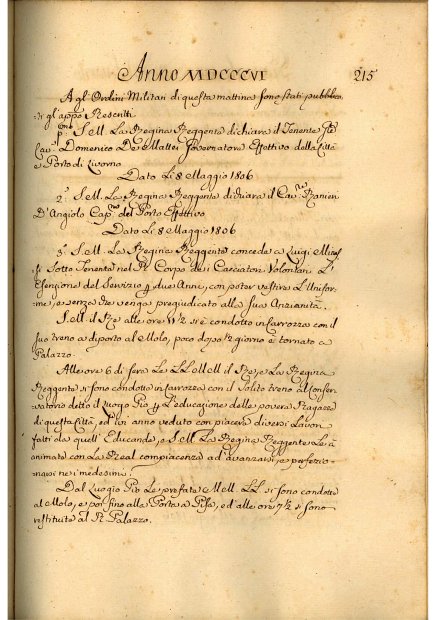 Anno MDCCCVI 215
Agl'Ordini Militari di questa mattina sono stati pubblica-
ti gl'appo Rescritti
S.M. La Regina Reggente dichiara il Tenente
Cav. Domenico De Mattei Governatore Effettivo della Città
e Porto di Livorno
Dato Li 8 Maggio 1806
2.° S.M. La Regina Reggente dichiara il Cav. Ranieri
D'Angiolo Cap. del Porto Effettivo
Dato Li 8 Maggio 1806
3.° S.M. La Regina Reggente concede a Luigi
Sotto Tenente nel R. Corpo dei Cacciatori Volontari L'
Esenzione del Servizio p due Anni, con poter vestire L'Unifor-
me, e senza che venga pregiudicato alla Sua Anzianità.
S.M. il Re alle ore 11½ si è condotto in Carrozza con il
suo treno a diporto al Molo, poco dopo ½ giorno è tornato a
Palazzo.
Alle ore 6 di sera Le LL. MM. il Re, e La Regina
Reggente si sono condotte in Carrozza con il Solito treno al Conser-
vatorio detto il Luogo Pio p L'educazione delle povere Ragazze
di questa Città, ed ivi anno veduto con piacere diversi Lavori
fatti da quell'Educande, e S.M. La Regina Reggente Le à
animate con La Real compiacenza ad avanzarsi, e perfezio-
narsi nei medesimi.
Dal Luogio Pio Le prefate MM. LL. si sono condotte
al Molo, e poi fino alla Porta a Pisa, ed alle ore 7½ si sono
restituite al R. Palazzo.